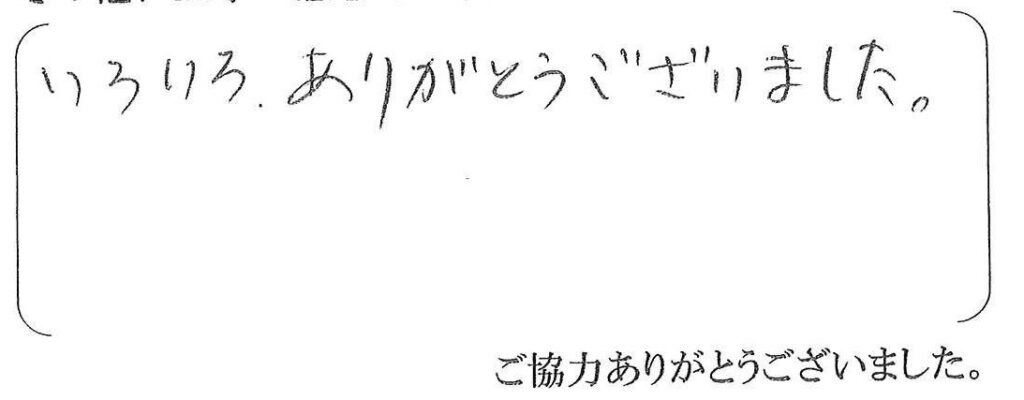 いろいろ、ありがとうございました。
ご協力ありがとうございました。